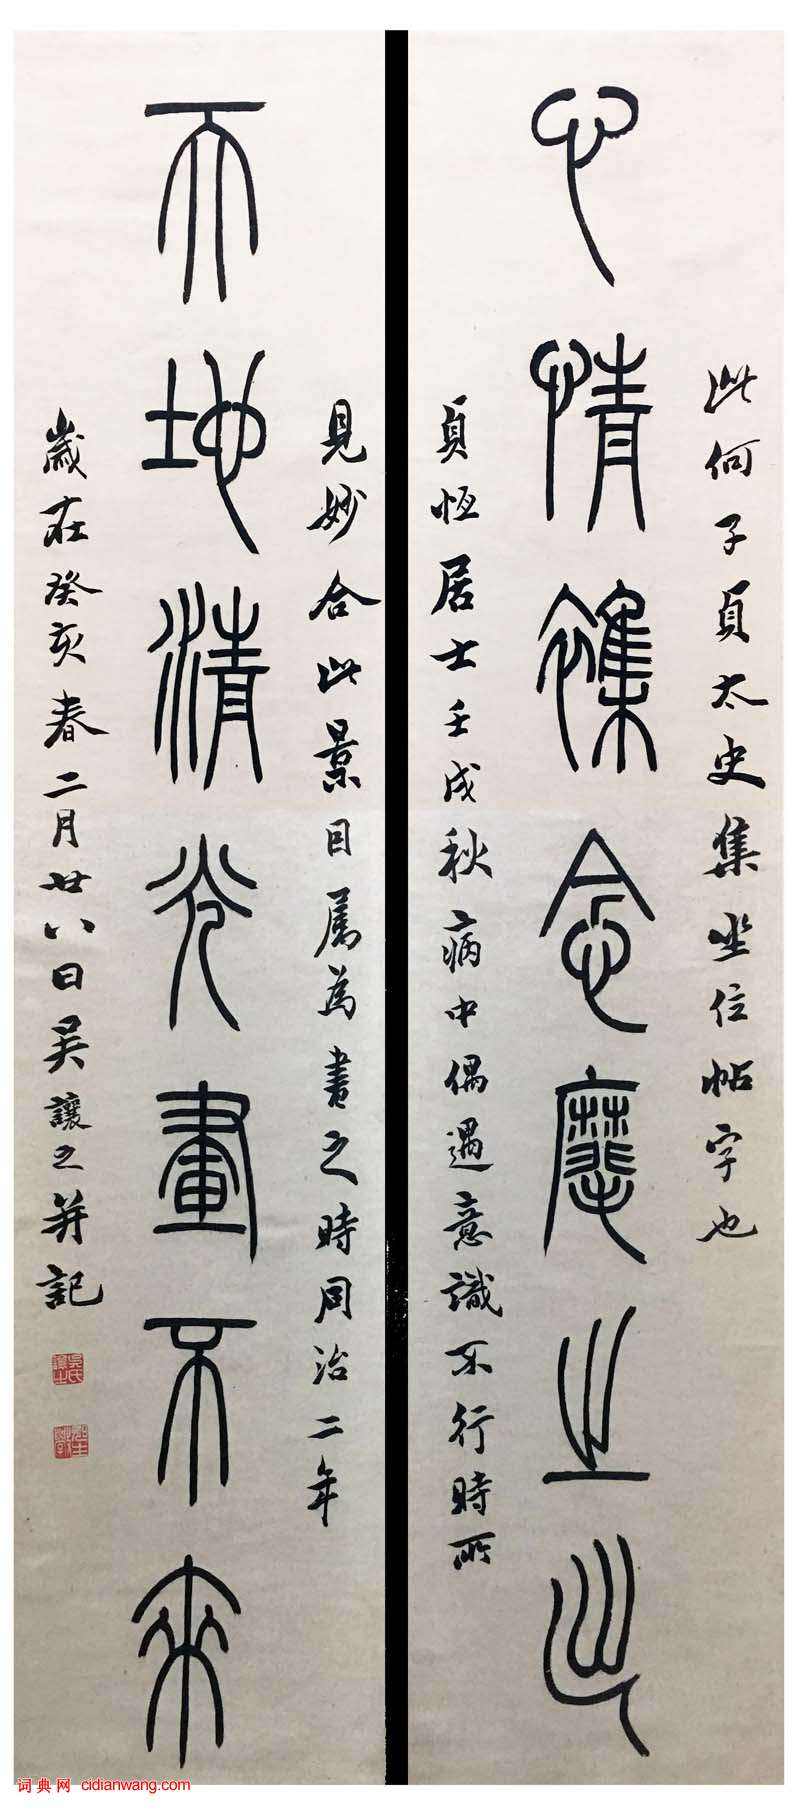 心情雜念麾之出
此何子貞太史集坐位帖字也
貞恆居士壬戌秋病中偶遇意識不行時所
天地清光畫不來
見妙合此景目屬為書之時同治二年
歲在癸亥春二月廿八日吳讓之并記
词典网 cidianwang.com